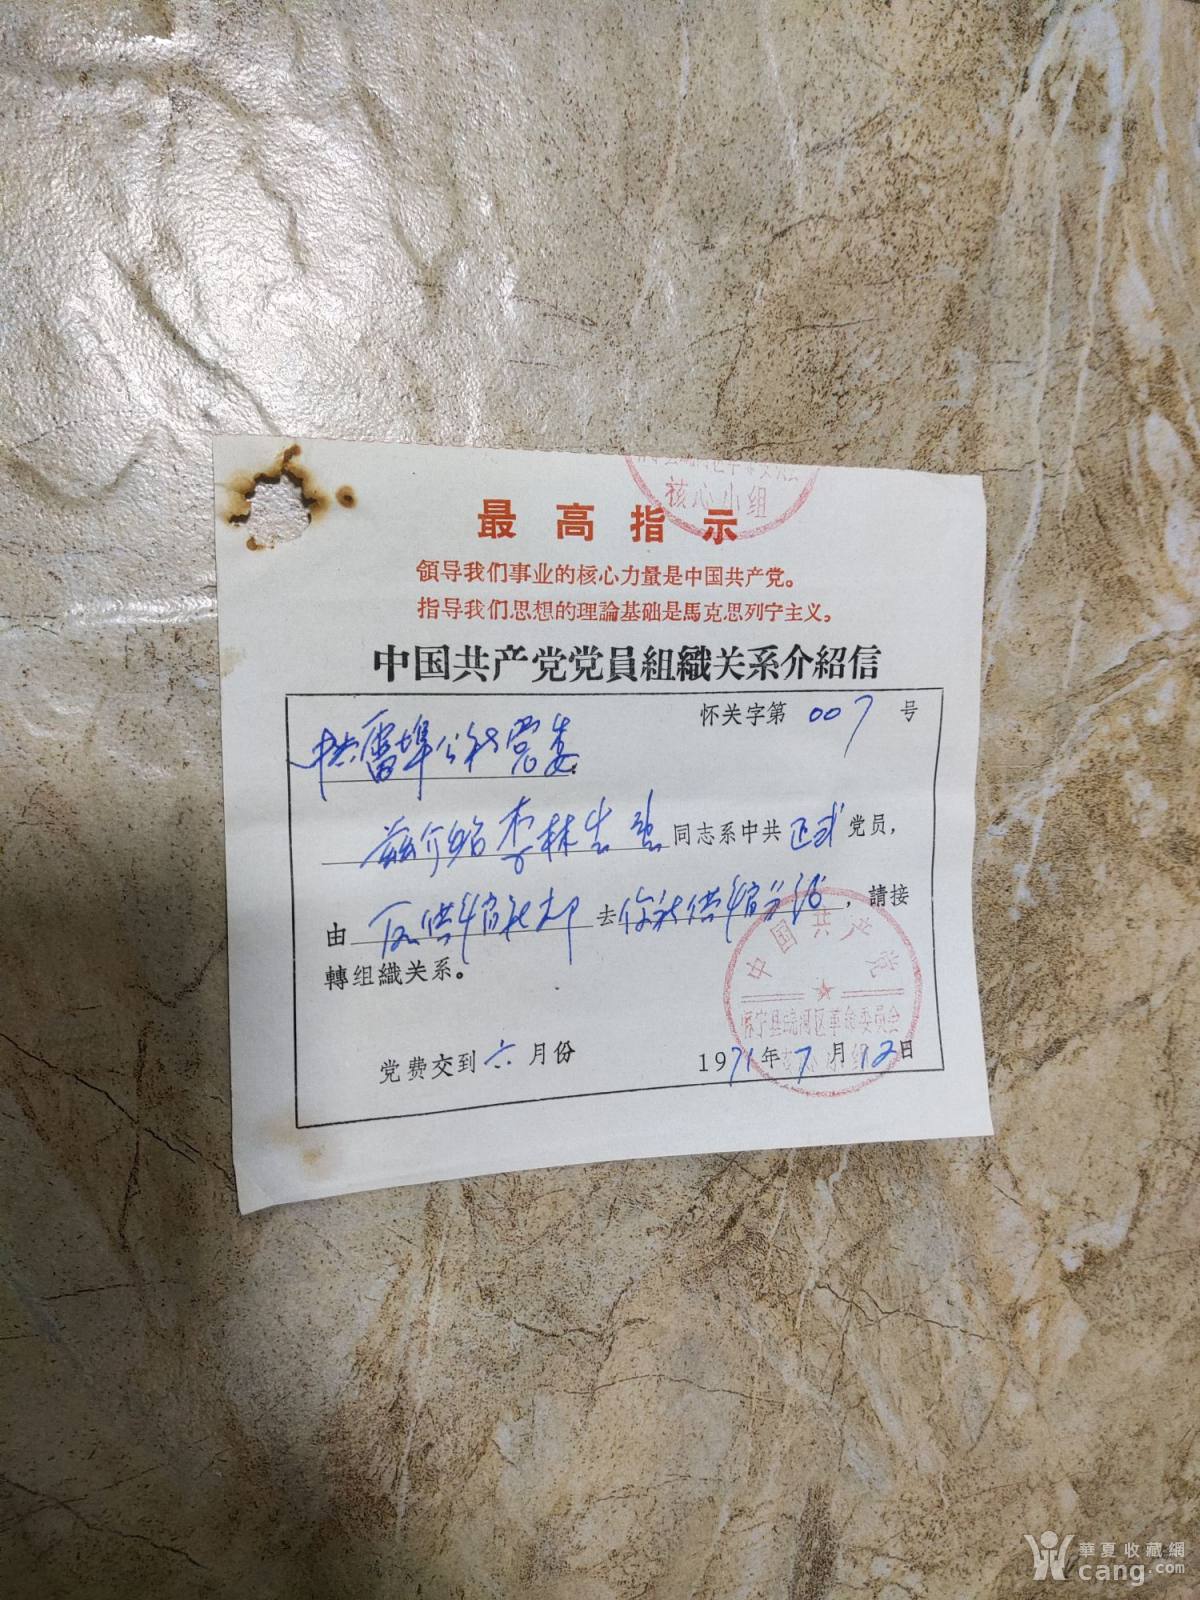 核心小组
最高指示
領导我们事业的核心力量是中国共产党。
指导我们思想的理論基础是馬克思列宁主义。
中国共产党党員組織关系介紹信
怀关字第 007 号
中共雷埠公社党委
兹介绍李林 同志系中共正式党员，
由 供销社 去 你社供销 ，請接
轉组織关系。
中国共产党
怀宁县皖河区革命委员会
党费交到六月份
1971年7月12日
華夏收藏網
cang.com